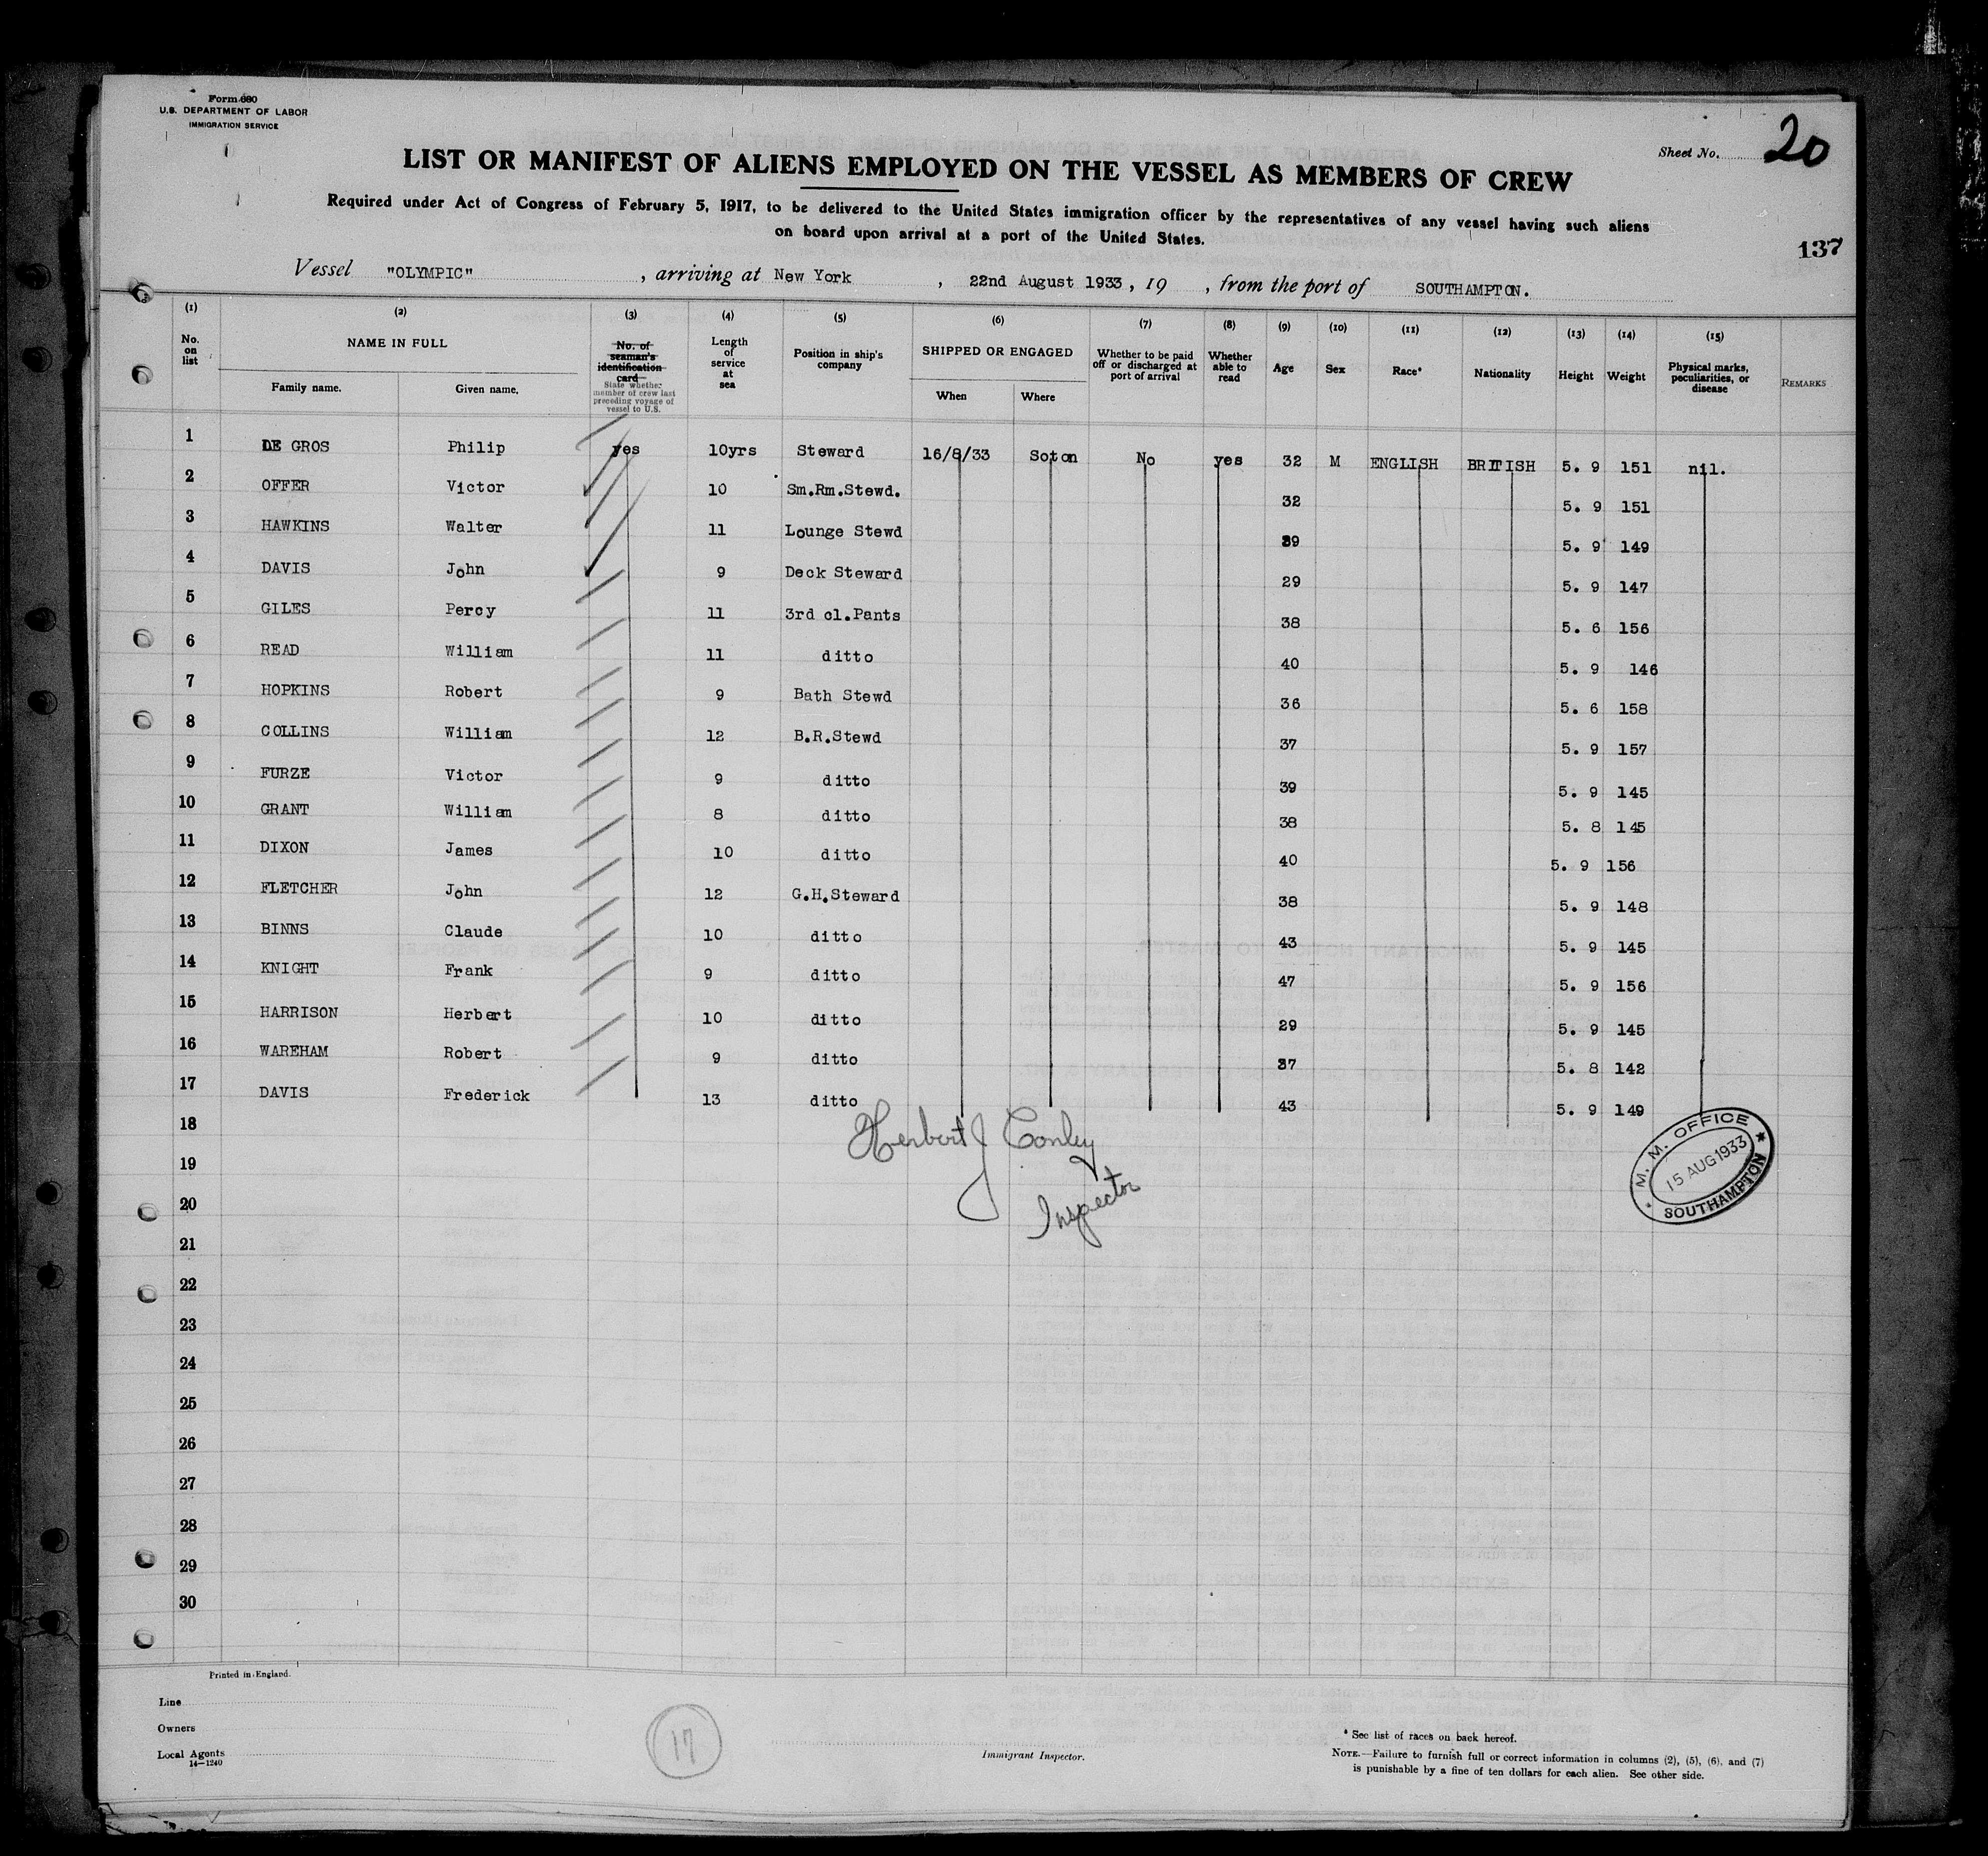 Form 680
U.S. DEPARTMENT OF LABOR
IMMIGRATION SERVICE
Sheet No. 20
LIST OR MANIFEST OF ALIENS EMPLOYED ON THE VESSEL AS MEMBERS OF CREW
Required under Act of Congress of February 5, 1917, to be delivered to the United States immigration officer by the representatives of any vessel having such aliens
on board upon arrival at a port of the United States.
137
Vessel "OLYMPIC" , arriving at New York , 22nd August 1933 , 19 , from the port of SOUTHAMPTON.
(1) (2) (3) (4) (5) (6) (7) (8) (9) (10) (11) (12) (13) (14) (15)
No. on list NAME IN FULL Family name. Given name. No. of seaman's identification card State whether member of crew last preceding voyage of vessel to U.S. Length of service at sea Position in ship's company SHIPPED OR ENGAGED When Where Whether to be paid off or discharged at port of arrival Whether able to read Age Sex Race* Nationality Height Weight Physical marks, peculiarities, or disease REMARKS
1 DE GROS Philip yes 10yrs Steward 16/8/33 Soton No yes 32 M ENGLISH BRITISH 5. 9 151 nil.
2 OFFER Victor 10 Sm.Rm.Stewd. 32 5. 9 151
3 HAWKINS Walter 11 Lounge Stewd 39 5. 9 149
4 DAVIS John 9 Deck Steward 29 5. 9 147
5 GILES Percy 11 3rd cl.Pants 38 5. 6 156
6 READ William 11 ditto 40 5. 9 146
7 HOPKINS Robert 9 Bath Stewd 36 5. 6 158
8 COLLINS William 12 B.R.Stewd 37 5. 9 157
9 FURZE Victor 9 ditto 39 5. 9 145
10 GRANT William 8 ditto 38 5. 8 145
11 DIXON James 10 ditto 40 5. 9 156
12 FLETCHER John 12 G.H.Steward 38 5. 9 148
13 BINNS Claude 10 ditto 43 5. 9 145
14 KNIGHT Frank 9 ditto 47 5. 9 156
15 HARRISON Herbert 10 ditto 29 5. 9 145
16 WAREHAM Robert 9 ditto 37 5. 8 142
17 DAVIS Frederick 13 ditto 43 5. 9 149
18
Herbert J Conley
Inspector
M. M. OFFICE
15 AUG 1933
SOUTHAMPTON
19
20
21
22
23
24
25
26
27
28
29
30
Printed in England.
Line
Owners
Local Agents
14-1240
17
Immigrant Inspector.
* See list of races on back hereof.
NOTE.—Failure to furnish full or correct information in columns (2), (5), (6), and (7)
is punishable by a fine of ten dollars for each alien. See other side.